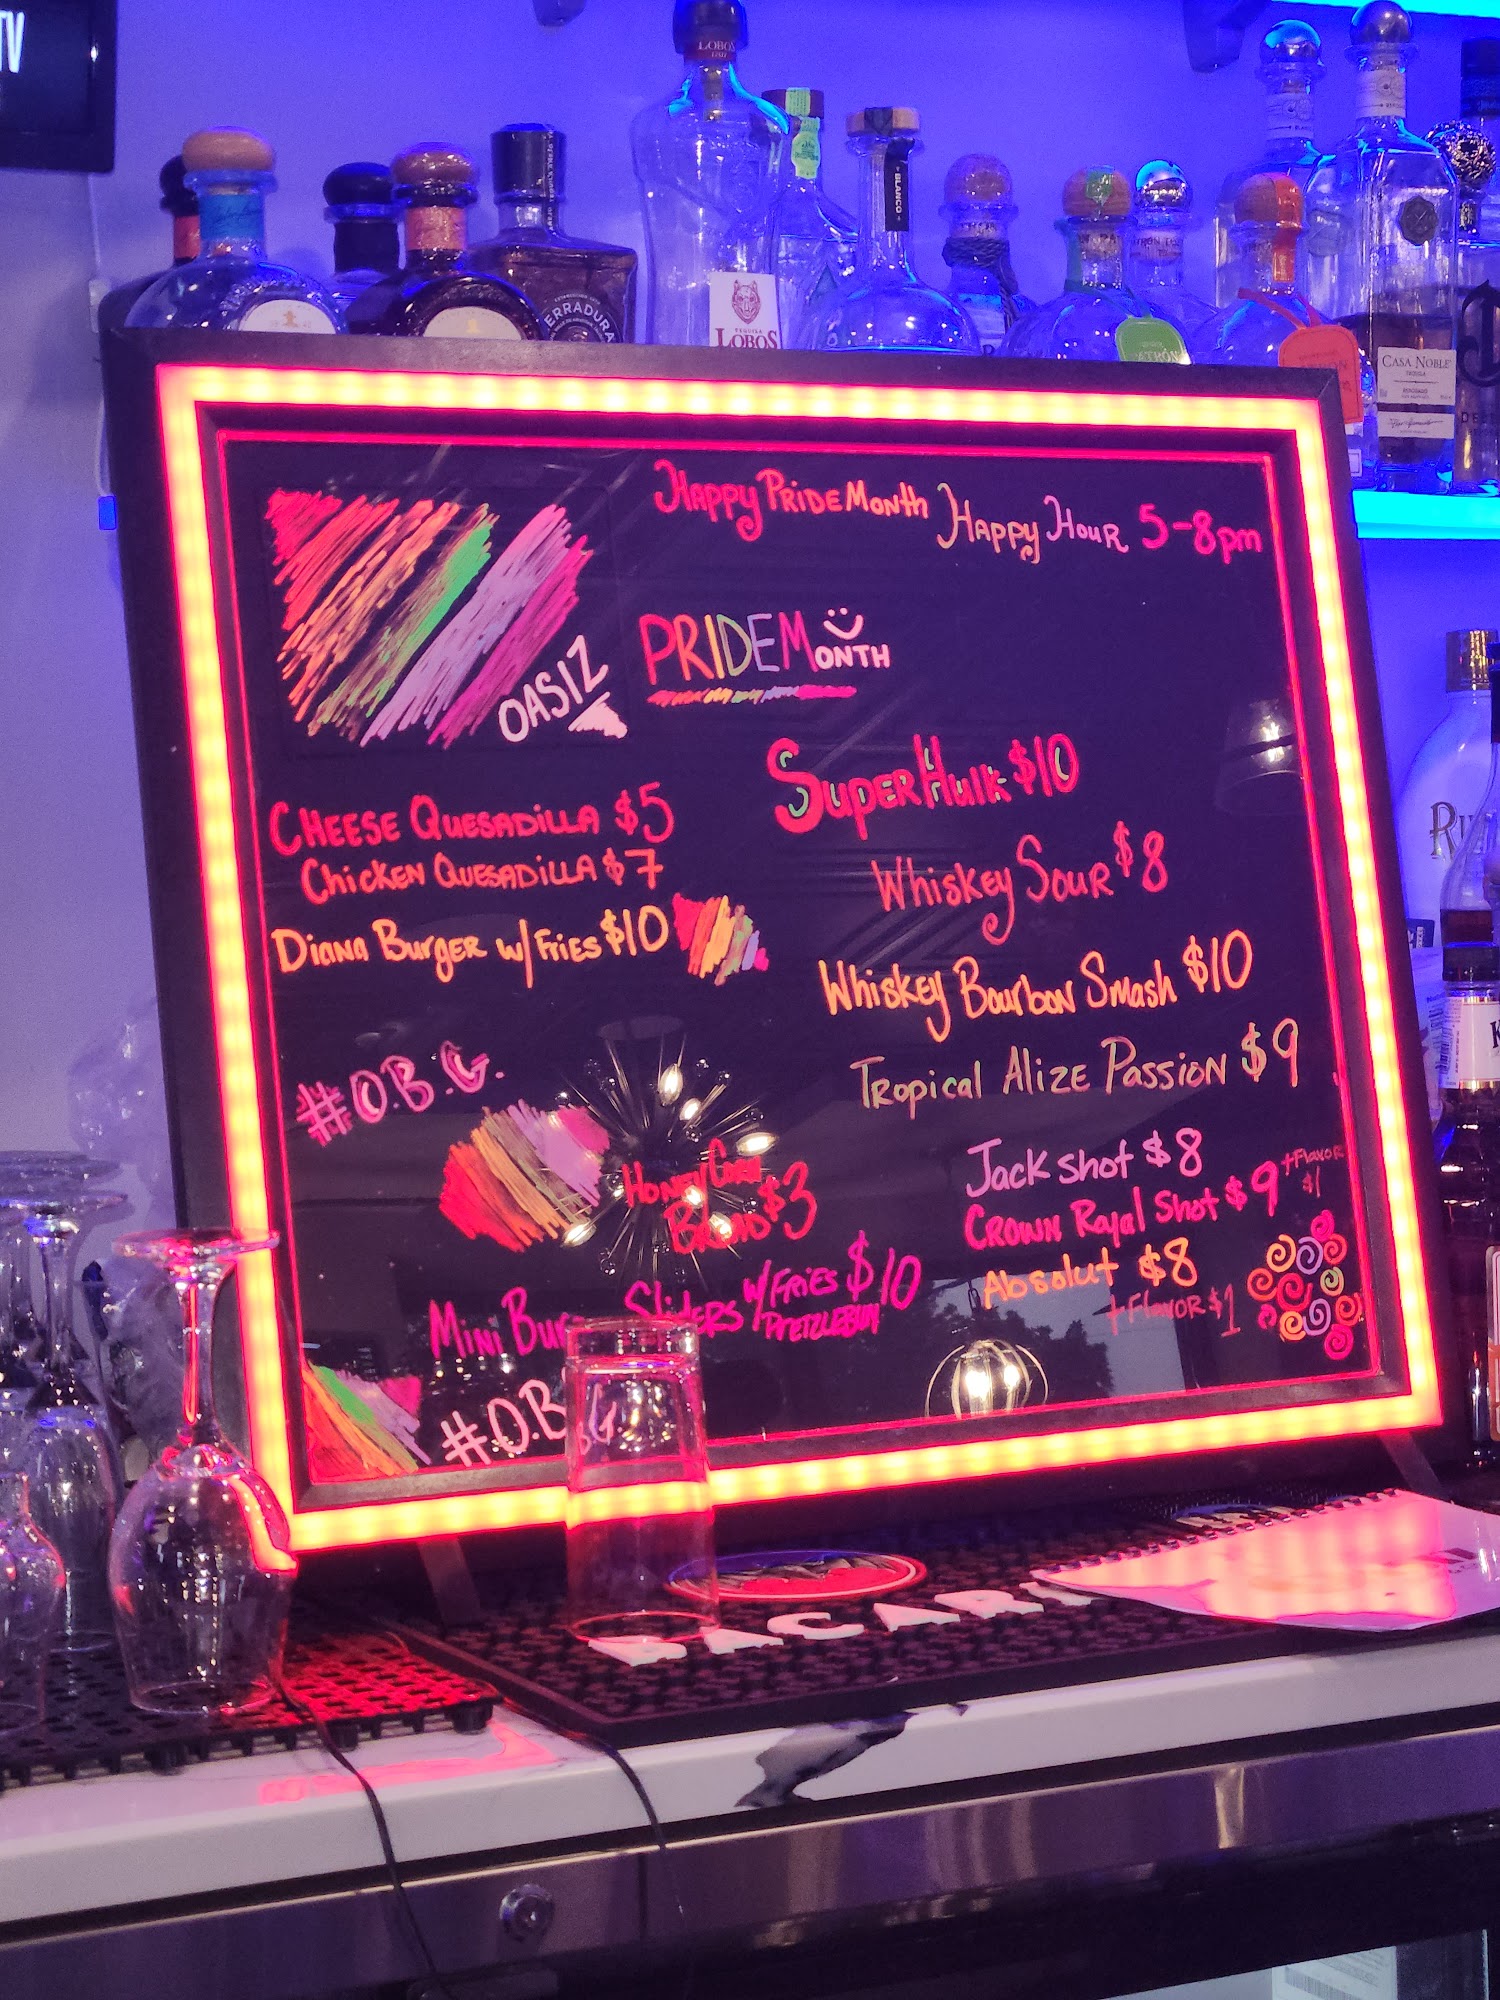 TV
LOBOS
BLANCO
ERRADURA
TEQUILA
LOBOS
CASA NOBLE
TEQUILA
Happy Pride Month Happy Hour 5-8pm
OASIZ
PRIDE MONTH
Super Hulk $10
Cheese Quesadilla $5
Chicken Quesadilla $7
Whiskey Sour $8
Diana Burger w/ Fries $10
Whiskey Bourbon Smash $10
Tropical Alize Passion $9
#O.B.G.
Jack shot $8
Honey Corn
Bread $3
Crown Royal Shot $9 +Flavor
$1
Absolut $8
+Flavor $1
Mini Burger Sliders w/ Fries $10
Pretzlebun
#O.B.G.
BACARDI